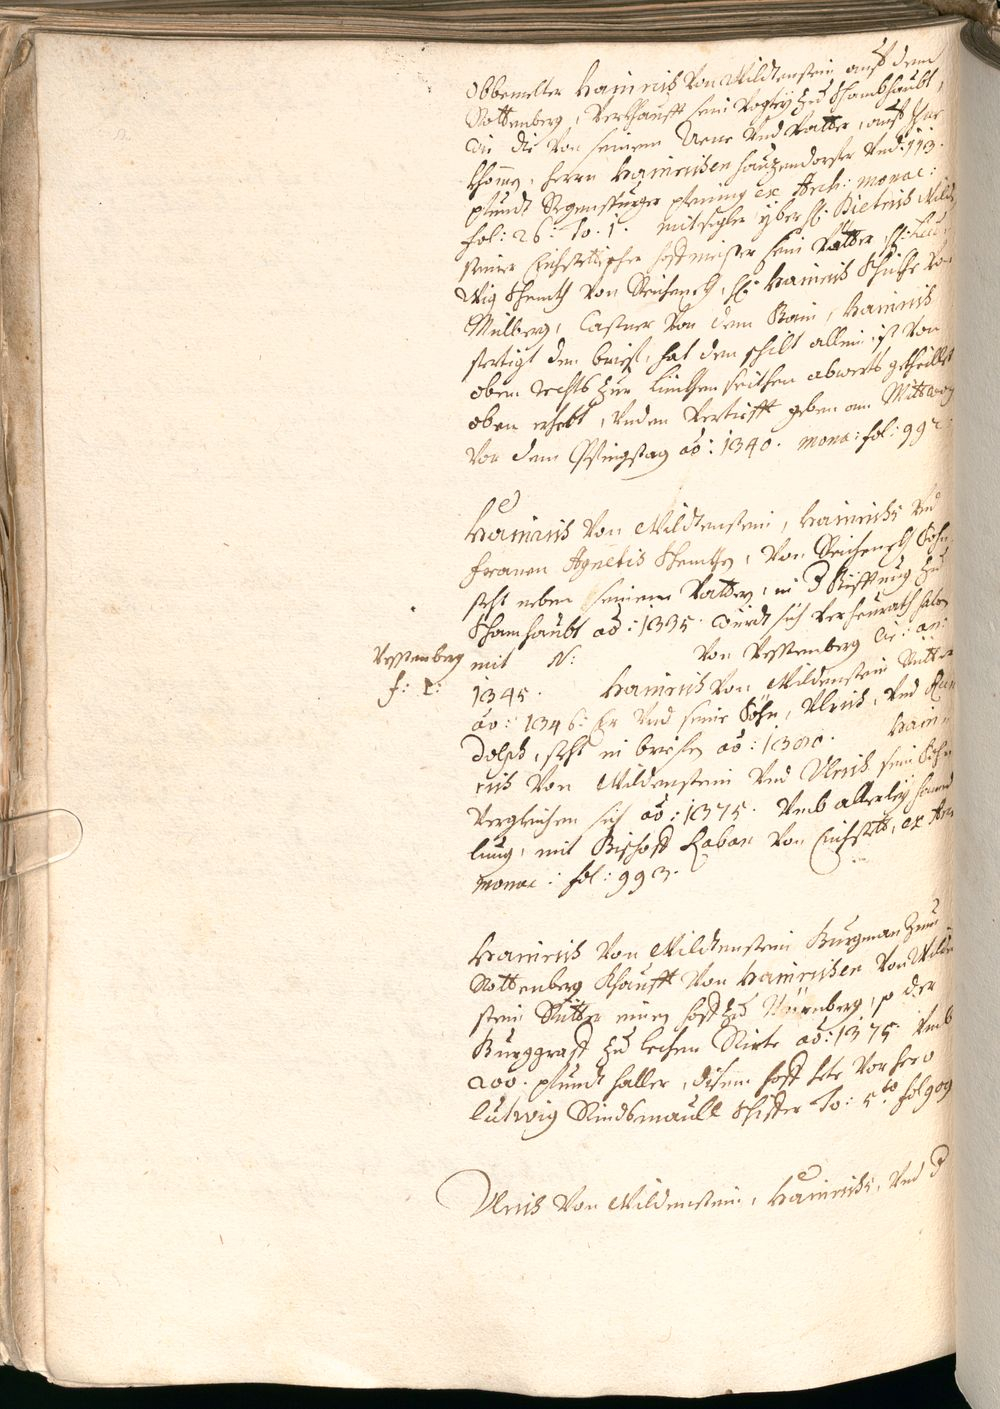 Obbemelter Hainrich Von Wildtenstein auff dem
Rottenberg, Verkhaufft sein Vogtey Zu Schambhaubt,
die die Von seinem Uene Und Vatter, auff Ihne
khomen, herrn Hainrichen hauzendorffer Umb: 113.
pfundt Regenspurger pfening ex Arch: monac:
fol: 26: To. 1. mitsigler yber H: Dietrich Wild
steiner Eichstettischer hoffmeister sein Vatter, H: Lud
wig Schenkh Von Reicheneckh, H: Hainrich Von
Milberg, Castner Von dem Rain, Hainrich
fertigt den brieff, hat den schilt allein, ist Von
oben rechts Zur Linckhen seithen abwerts getheillet
oben erhebt, Unden Vertiefft geben am Mittwoch
Vor dem Pfingstag ao: 1340. mona: fol: 992
Hainrich Von Wildtenstein, Hainrichs Und
frauen Agnetis Schenkhin, Von Reicheneckh Sohn
steht neben seinem Vatter, in d Stifftung Zu
Schamhaubt ao: 1335. Wurdt sich Verheurath haben
Vestenberg mit N: Von Vestenberg Cir: an:
f: 2: 1345. Hainrich Von Wildenstein Ritter
ao: 1346: Er Und seine Söhn, Ulrich, Und Ru
dolph, steht in brieffen ao: 1380. Hain
rich Von Wildenstein Und Ulrich sein Sohn
Vergleichen sich ao: 1375. Umb allerley hand
lung, mit Bischoff Raban Von Eichstett, ex Arch
monac: fol: 993.
Hainrich Von Wildtenstein Burgman Zum
Rottenberg Khaufft Von Hainrichen Von Wilden
stein Ritter einen hoff Zu Nürnberg, so der
Burggraff Zu lechen Rürte ao: 1375. Umb
200. pfundt haller, disem hoff hete Vorhero
Ludwig Rindsmaull To: 5to fol 909
Ulrich Von Wildenstein, Hainrichs, Und d